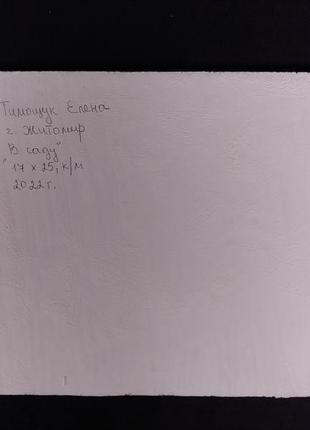 Тимощук Елена
г. Житомир
"В саду"
17 х 25, к/м
2022 г.